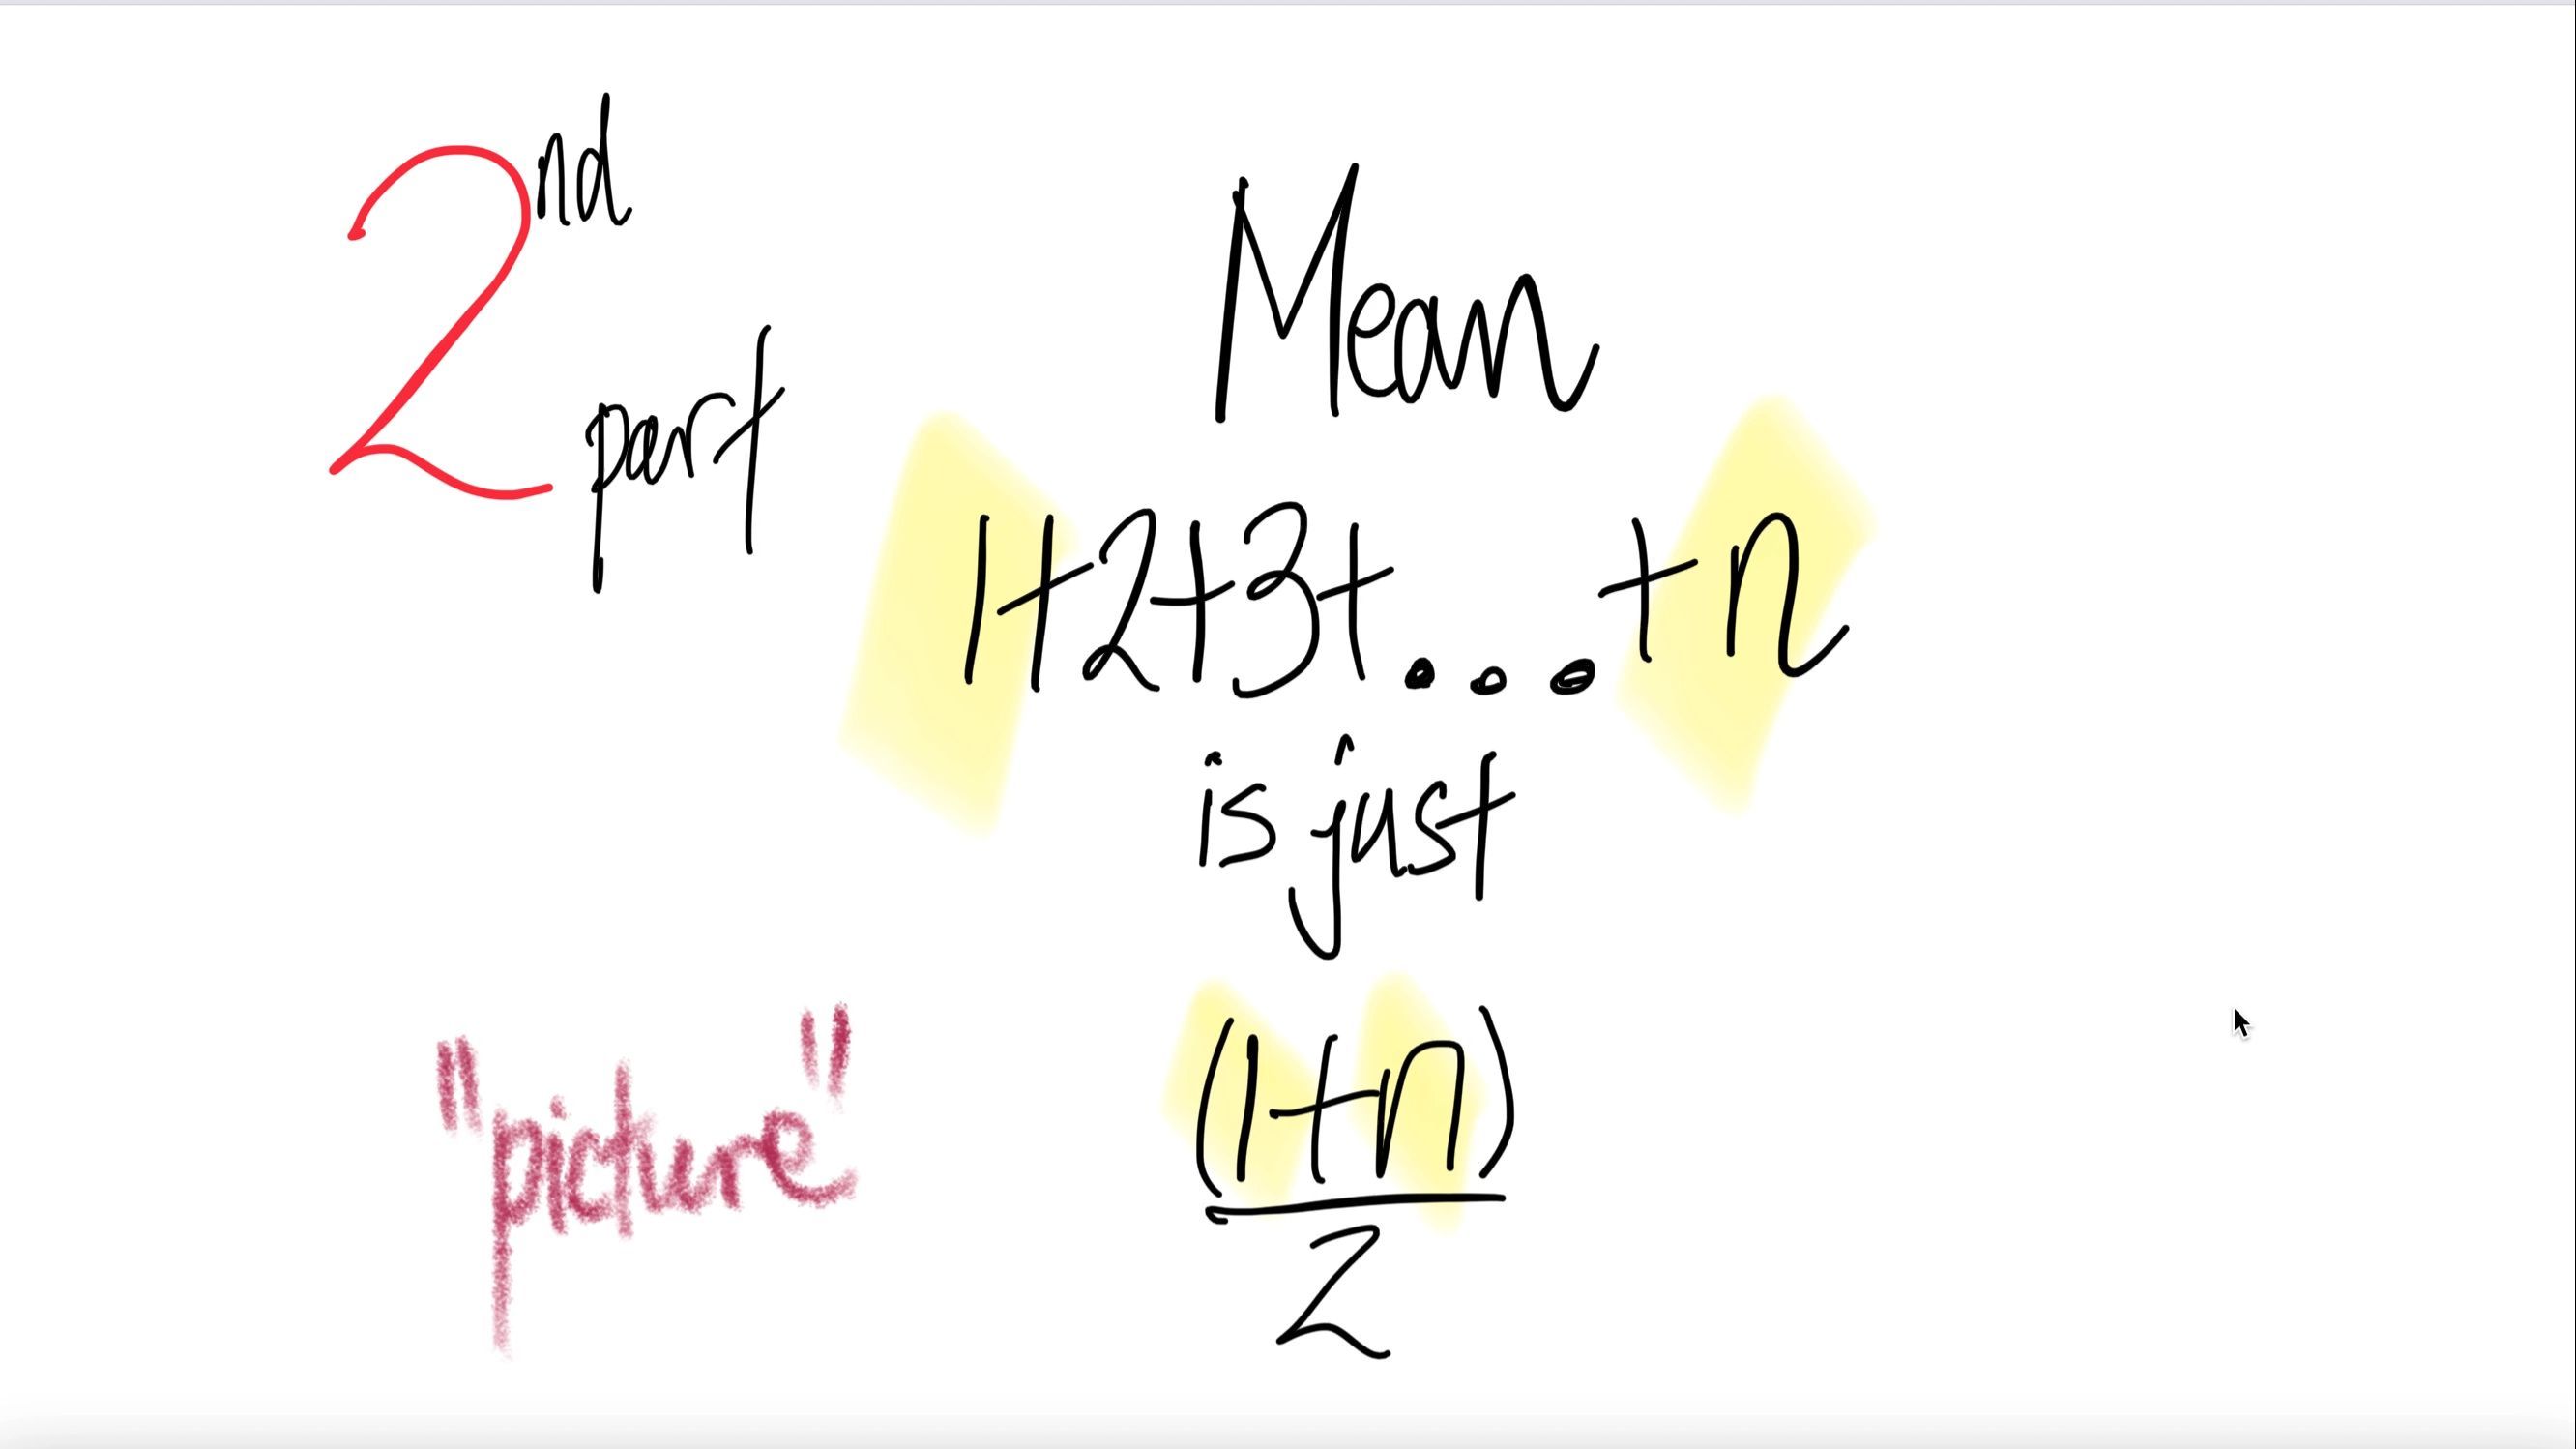 2nd
part
Mean
1+2+3+...+n
is just
(1+n)
2
"picture"